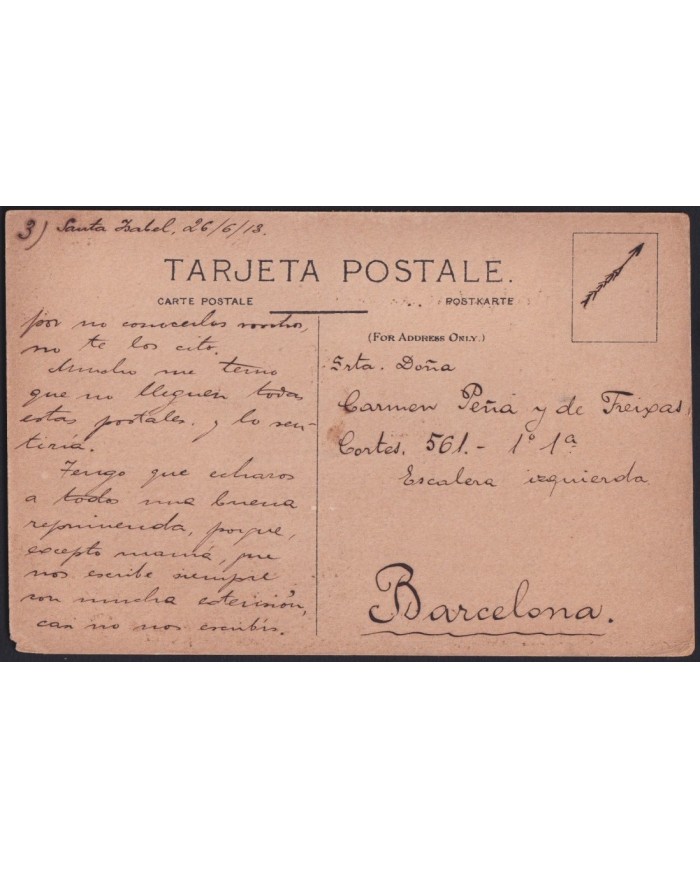 3) Santa Isabel, 26/6/13.
TARJETA POSTALE.
CARTE POSTALE
POSTKARTE
(FOR ADDRESS ONLY.)
por no conocerlos vosotros,
no te los cito.
Mucho me temo
que no lleguen todas
estas postales y lo sen-
tiría.
Tengo que echaros
a todos una buena
reprimenda, porque,
excepto mamá, que
nos escribe siempre
con mucha extensión,
casi no nos escribís.
Srta. Doña
Carmen Peña y de Freixas,
Cortes, 561.- 1º 1ª
Escalera izquierda
Barcelona.